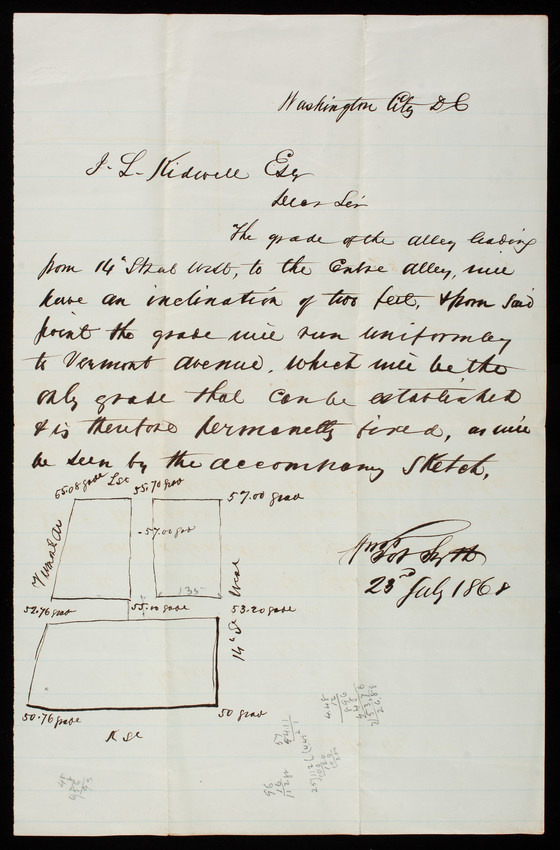 Washington City DC
J. L. Kidwell Esq
Dear Sir
The grade of the alley leading
from 14" Street West, to the Entre alley, will
have an inclination of two feet, & from said
point the grade will run uniformly
to Vermont avenue, which will be the
only grade that can be established
& is therefore permanetly fixed, as will
be seen by the accompany Sketch,
65.08 grade L St 55.70 grad
57.00 grad
-57.00 grad
135
West
52.76 grad
55.00 grade
53.20 grade
14" St
23rd July 1868
50.76 grade
50 grad
K St